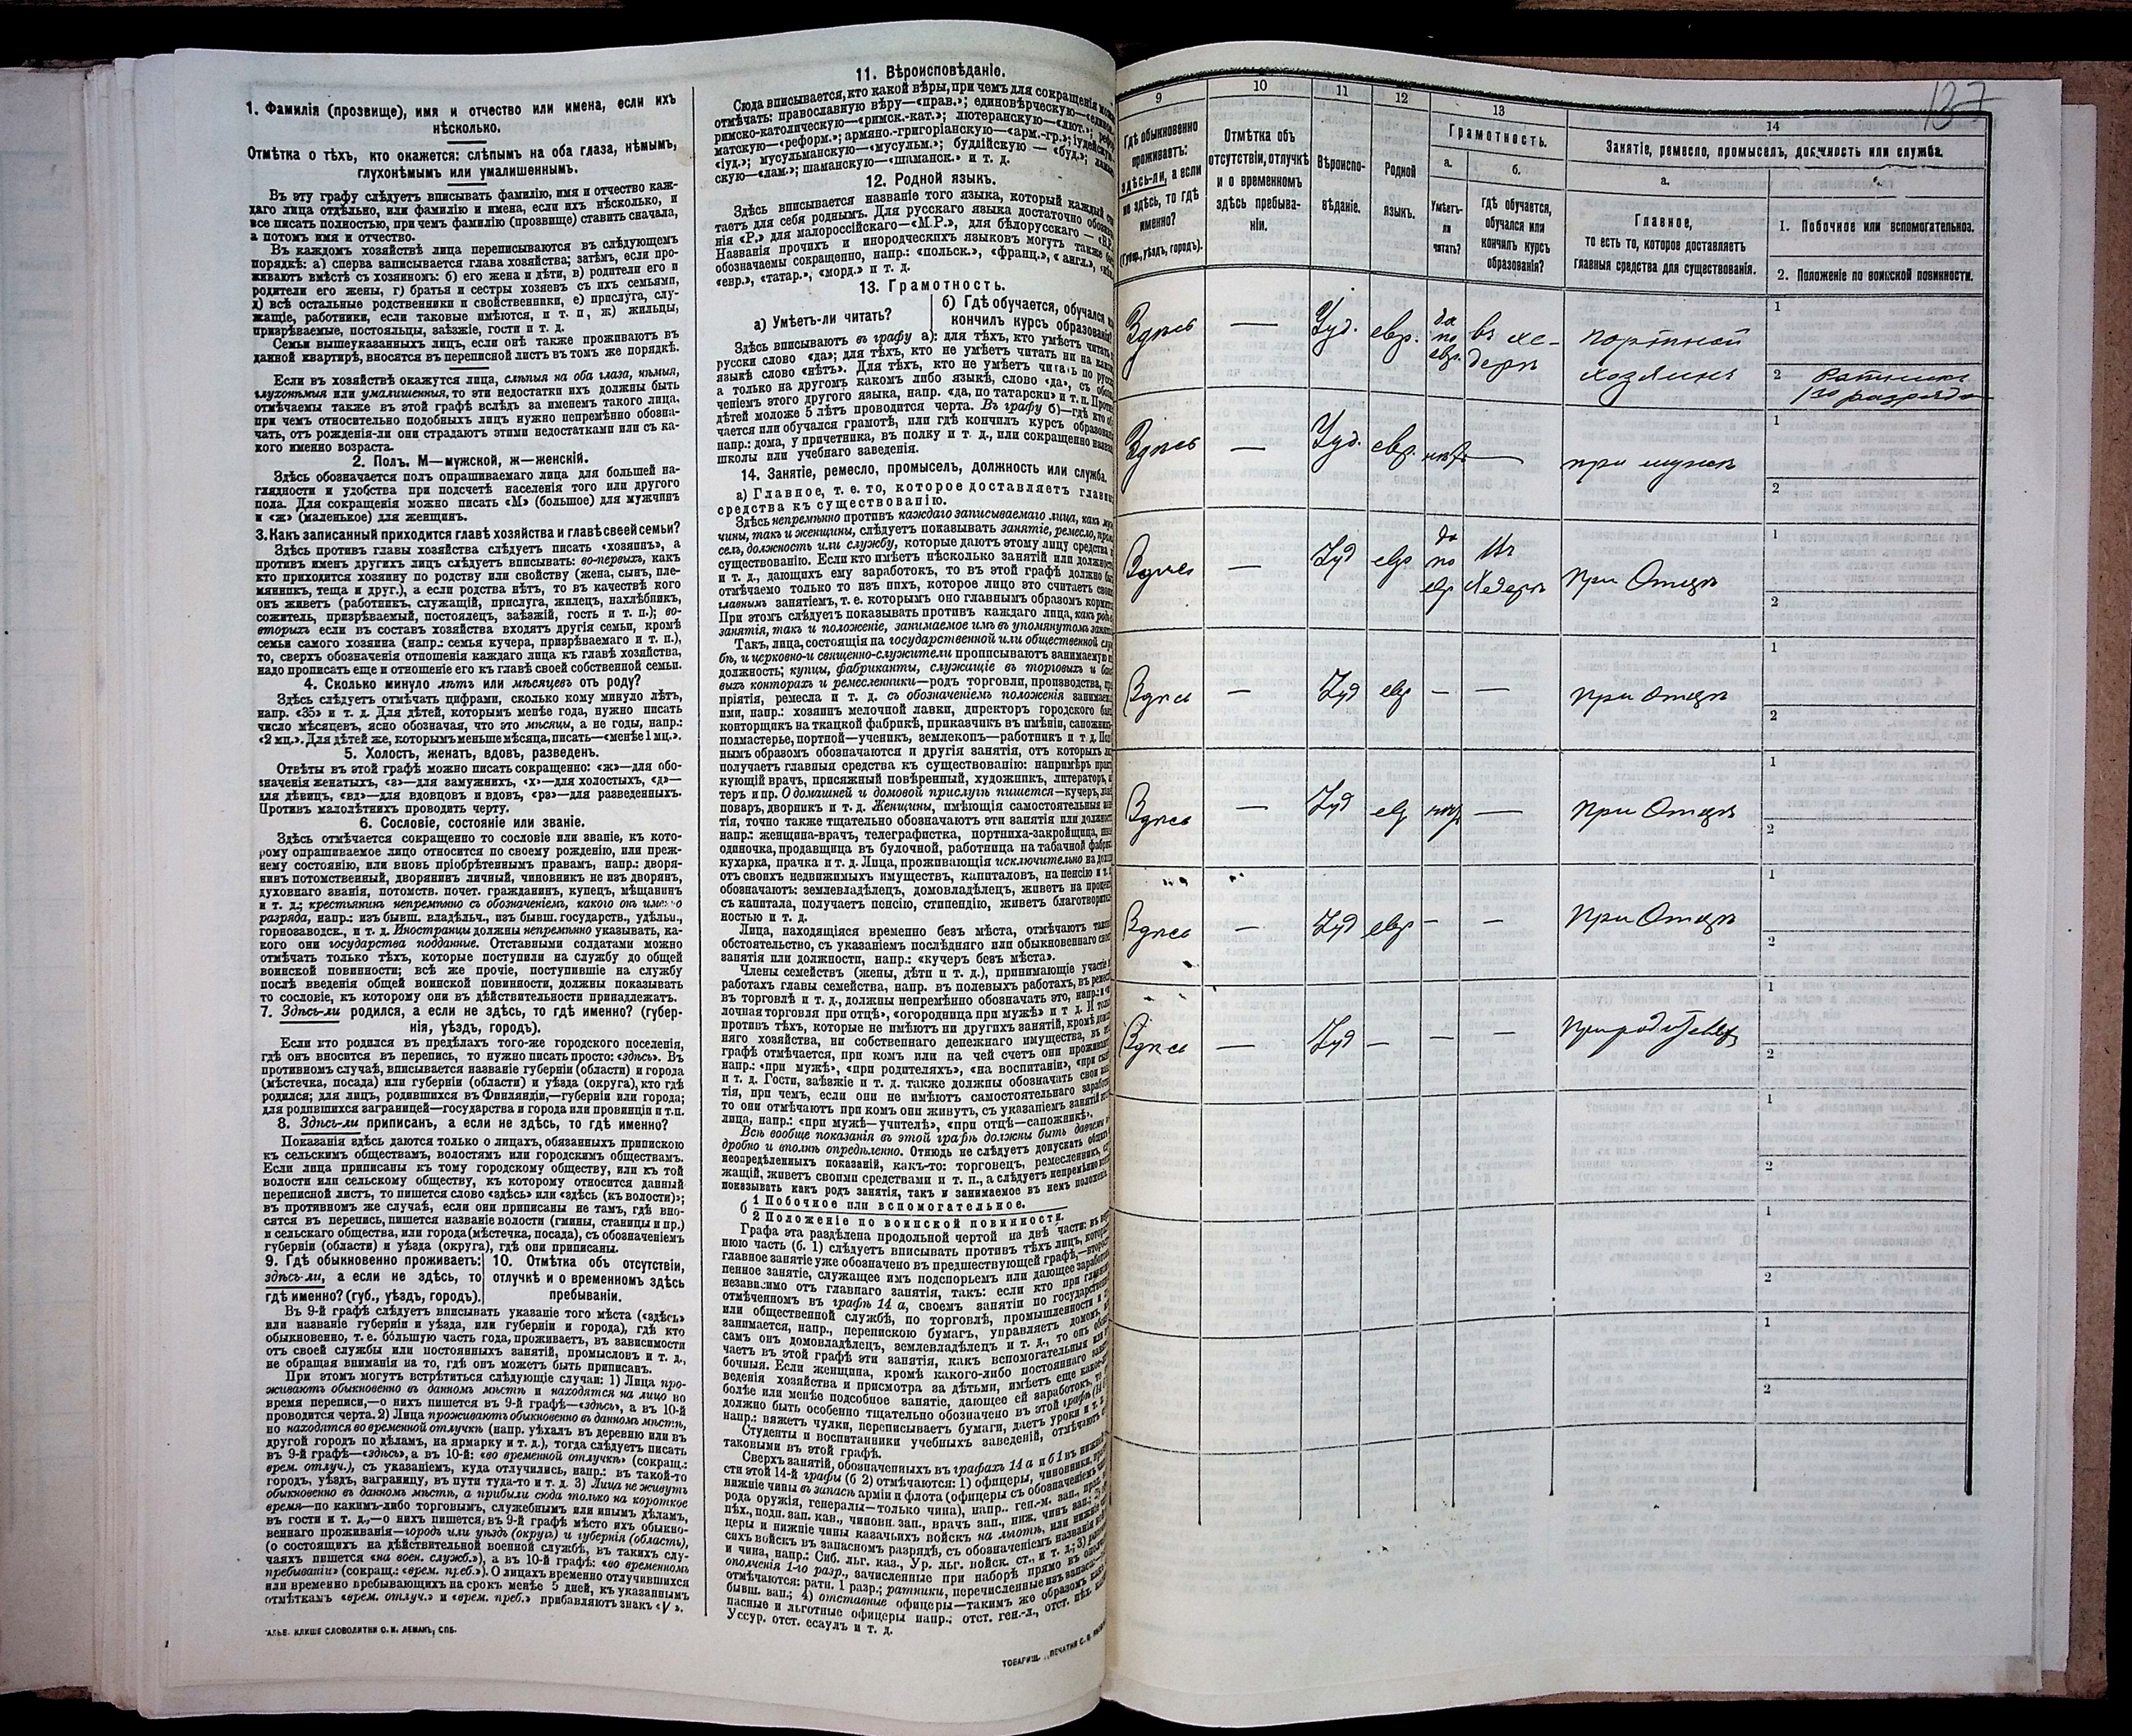 1. Фамилія (прозвище), имя и отчество или имена, если ихъ
нѣсколько.
Отмѣтка о тѣхъ, кто окажется: слѣпымъ на оба глаза, нѣмымъ,
глухонѣмымъ или умалишеннымъ.
Въ эту графу слѣдуетъ вписывать фамилію, имя и отчество каж-
даго лица отдѣльно, или фамилію и имена, если ихъ нѣсколько, и
все писать полностью, при чемъ фамилію (прозвище) ставить сначала,
а потомъ имя и отчество.
Въ каждомъ хозяйствѣ лица переписываются въ слѣдующемъ
порядкѣ: а) сперва записывается глава хозяйства; затѣмъ, если про-
живаютъ вмѣстѣ съ хозяиномъ: б) его жена и дѣти, в) родители его и
родители его жены, г) братья и сестры хозяевъ съ ихъ семьями,
д) всѣ остальные родственники и свойственники, е) прислуга, слу-
жащіе, работники, если таковые имѣются, и т. п., ж) жильцы,
призрѣваемые, постояльцы, заѣзжіе, гости и т. д.
Семьи вышеуказанныхъ лицъ, если онѣ также проживаютъ въ
данной квартирѣ, вносятся въ переписной листъ въ томъ же порядкѣ.
Если въ хозяйствѣ окажутся лица, слѣпыя на оба глаза, нѣмыя,
глухонѣмыя или умалишенныя, то эти недостатки ихъ должны быть
отмѣчаемы также въ этой графѣ вслѣдъ за именемъ такого лица,
при чемъ относительно подобныхъ лицъ нужно непремѣнно обозна-
чать, отъ рожденія-ли они страдаютъ этими недостатками или съ ка-
кого именно возраста.
2. Полъ. М—мужской, ж—женскій.
Здѣсь обозначается полъ опрашиваемаго лица для большей на-
глядности и удобства при подсчетѣ населенія того или другого
пола. Для сокращенія можно писать «М» (большое) для мужчинъ
и «ж» (маленькое) для женщинъ.
3. Какъ записанный приходится главѣ хозяйства и главѣ своей семьи?
Здѣсь противъ главы хозяйства слѣдуетъ писать «хозяинъ», а
противъ именъ другихъ лицъ слѣдуетъ вписывать: во-первыхъ, какъ
кто приходится хозяину по родству или свойству (жена, сынъ, пле-
мянникъ, теща и друг.), а если родства нѣтъ, то въ качествѣ кого
онъ живетъ (работникъ, служащій, прислуга, жилецъ, нахлѣбникъ,
сожитель, призрѣваемый, постоялецъ, заѣзжій, гость и т. п.); во-
вторыхъ если въ составъ хозяйства входятъ другія семьи, кромѣ
семьи самого хозяина (напр.: семья кучера, призрѣваемаго и т. п.),
то, сверхъ обозначенія отношенія каждаго лица къ главѣ хозяйства,
надо прописать еще и отношеніе его къ главѣ своей собственной семьи.
4. Сколько минуло лѣтъ или мѣсяцевъ отъ роду?
Здѣсь слѣдуетъ отмѣчать цифрами, сколько кому минуло лѣтъ,
напр. «35» и т. д. Для дѣтей, которымъ менѣе года, нужно писать
число мѣсяцевъ, ясно обозначая, что это мѣсяцы, а не годы, напр.:
«2 мц.». Для дѣтей же, которымъ меньше мѣсяца, писать—«менѣе 1 мц.».
5. Холостъ, женатъ, вдовъ, разведенъ.
Отвѣты въ этой графѣ можно писать сокращенно: «ж»—для обо-
значенія женатыхъ, «з»—для замужнихъ, «х»—для холостыхъ, «д»—
для дѣвицъ, «вд»—для вдовцовъ и вдовъ, «рз»—для разведенныхъ.
Противъ малолѣтнихъ проводить черту.
6. Сословіе, состояніе или званіе.
Здѣсь отмѣчается сокращенно то сословіе или званіе, къ кото-
рому опрашиваемое лицо относится по своему рожденію, или преж-
нему состоянію, или вновь пріобрѣтеннымъ правамъ, напр.: дворя-
нинъ потомственный, дворянинъ личный, чиновникъ не изъ дворянъ,
духовнаго званія, потомств. почет. гражданинъ, купецъ, мѣщанинъ
и т. д.; крестьянинъ непремѣнно съ обозначеніемъ, какого онъ именно
разряда, напр.: изъ бывш. владѣльч., изъ бывш. государств., удѣльн.,
горнозаводск., и т. д. Иностранцы должны непремѣнно указывать, ка-
кого они государства подданные. Отставными солдатами можно
отмѣчать только тѣхъ, которые поступили на службу до общей
воинской повинности; всѣ же прочіе, поступившіе на службу
послѣ введенія общей воинской повинности, должны показывать
то сословіе, къ которому они въ дѣйствительности принадлежатъ.
7. Здѣсь-ли родился, а если не здѣсь, то гдѣ именно? (губер-
нія, уѣздъ, городъ).
Если кто родился въ предѣлахъ того-же городского поселенія,
гдѣ онъ вносится въ перепись, то нужно писать просто: «здѣсь». Въ
противномъ случаѣ, вписывается названіе губерніи (области) и города
(мѣстечка, посада) или губерніи (области) и уѣзда (округа), кто гдѣ
родился; для лицъ, родившихся въ Финляндіи,—губерніи или города;
для родившихся заграницей—государства и города или провинціи и т.п.
8. Здѣсь-ли приписанъ, а если не здѣсь, то гдѣ именно?
Показанія здѣсь даются только о лицахъ, обязанныхъ припискою
къ сельскимъ обществамъ, волостямъ или городскимъ обществамъ.
Если лица приписаны къ тому городскому обществу, или къ той
волости или сельскому обществу, къ которому относится данный
переписной листъ, то пишется слово «здѣсь» или «здѣсь (къ волости)»;
въ противномъ же случаѣ, если они приписаны не тамъ, гдѣ вно-
сятся въ перепись, пишется названіе волости (гмины, станицы и пр.)
и сельскаго общества, или города (мѣстечка, посада), съ обозначеніемъ
губерніи (области) и уѣзда (округа), гдѣ они приписаны.
9. Гдѣ обыкновенно проживаетъ:
здѣсь-ли, а если не здѣсь, то
гдѣ именно? (губ., уѣздъ, городъ).
10. Отмѣтка объ отсутствіи,
отлучкѣ и о временномъ здѣсь
пребываніи.
Въ 9-й графѣ слѣдуетъ вписывать указаніе того мѣста («здѣсь»
или названіе губерніи и уѣзда, или губерніи и города), гдѣ кто
обыкновенно, т. е. бо́льшую часть года, проживаетъ, въ зависимости
отъ своей службы или постоянныхъ занятій, промысловъ и т. д.,
не обращая вниманія на то, гдѣ онъ можетъ быть приписанъ.
При этомъ могутъ встрѣтиться слѣдующіе случаи: 1) Лица про-
живаютъ обыкновенно въ данномъ мѣстѣ и находятся на лицо во
время переписи,—о нихъ пишется въ 9-й графѣ—«здѣсь», а въ 10-й
проводится черта. 2) Лица проживаютъ обыкновенно въ данномъ мѣстѣ,
но находятся во временной отлучкѣ (напр. уѣхалъ въ деревню или въ
другой городъ по дѣламъ, на ярмарку и т. д.), тогда слѣдуетъ писать
въ 9-й графѣ—«здѣсь», а въ 10-й: «во временной отлучкѣ» (сокращ.:
врем. отлуч.), съ указаніемъ, куда отлучились, напр.: въ такой-то
городъ, уѣздъ, заграницу, въ пути туда-то и т. д. 3) Лица не живутъ
обыкновенно въ данномъ мѣстѣ, а прибыли сюда только на короткое
время—по какимъ-либо торговымъ, служебнымъ или инымъ дѣламъ,
въ гости и т. д.,—о нихъ пишется, въ 9-й графѣ мѣсто ихъ обыкно-
веннаго проживанія—городъ или уѣздъ (округъ) и губернія (область),
(о состоящихъ на дѣйствительной военной службѣ, въ такихъ слу-
чаяхъ пишется «на воен. служб.»), а въ 10-й графѣ: «во временномъ
пребываніи» (сокращ.: «врем. преб.»). О лицахъ временно отлучившихся
или временно пребывающихъ на срокъ менѣе 5 дней, къ указаннымъ
отмѣткамъ «врем. отлуч.» и «врем. преб.» прибавляютъ знакъ «V».
КЛИШЕ СЛОВОЛИТНИ О. И. ЛЕМАНЪ, СПБ.
11. Вѣроисповѣданіе.
Сюда вписывается, кто какой вѣры, при чемъ для сокращенія
отмѣчать: православную вѣру—«прав.»; единовѣрческую—
римско-католическую—«римск.-кат.»; лютеранскую—«лют.»;
матскую—«реформ.»; армяно.-григоріанскую—«арм.-гр.»;
«іуд.»; мусульманскую—«мусульм.»; буддійскую — «буд.»;
скую—«лам.»; шаманскую—«шаманск.» и т. д.
12. Родной языкъ.
Здѣсь вписывается названіе того языка, который каждый
таетъ для себя роднымъ. Для русскаго языка достаточно
нія «Р.» для малороссійскаго—«М.Р.», для бѣлорусскаго —
Названія прочихъ и инородческихъ языковъ могутъ также
обозначаемы сокращенно, напр.: «польск.», «франц.», «англ.»,
«евр.», «татар.», «морд.» и т. д.
13. Грамотность.
а) Умѣетъ-ли читать?
б) Гдѣ обучается, обучался
кончилъ курсъ образованія?
Здѣсь вписываютъ въ графу а): для тѣхъ, кто умѣетъ читать
русски слово «да»; для тѣхъ, кто не умѣетъ читать ни на
языкѣ слово «нѣтъ». Для тѣхъ, кто не умѣетъ читать по
а только на другомъ какомъ либо языкѣ, слово «да», съ
ченіемъ этого другого языка, напр. «да, по татарски» и т. п.
дѣтей моложе 5 лѣтъ проводится черта. Въ графу б)—гдѣ кто
чается или обучался грамотѣ, или гдѣ кончилъ курсъ
напр.: дома, у причетника, въ полку и т. д., или сокращенно
школы или учебнаго заведенія.
14. Занятіе, ремесло, промыселъ, должность или служба.
а) Главное, т. е. то, которое доставляетъ
средства къ существованію.
Здѣсь непремѣнно противъ каждаго записываемаго лица, какъ
чины, такъ и женщины, слѣдуетъ показывать занятіе, ремесло,
селъ, должность или службу, которые даютъ этому лицу средства
существованію. Если кто имѣетъ нѣсколько занятій или
и т. д., дающихъ ему заработокъ, то въ этой графѣ должно
отмѣчаемо только то изъ нихъ, которое лицо это считаетъ
главнымъ занятіемъ, т. е. которымъ оно главнымъ образомъ
При этомъ слѣдуетъ показывать противъ каждаго лица, какъ
занятія, такъ и положеніе, занимаемое имъ въ упомянутомъ
Такъ, лица, состоящія на государственной или общественной
бѣ, и церковно-и священно-служители прописываютъ занимаемую
должность; купцы, фабриканты, служащіе въ торговыхъ и
выхъ конторахъ и ремесленники—родъ торговли, производства,
пріятія, ремесла и т. д. съ обозначеніемъ положенія
ими, напр.: хозяинъ мелочной лавки, директоръ городского
конторщикъ на ткацкой фабрикѣ, приказчикъ въ имѣніи,
подмастерье, портной—ученикъ, землекопъ—работникъ и т. д.
нымъ образомъ обозначаются и другія занятія, отъ которыхъ
получаетъ главныя средства къ существованію: напримѣръ
кующій врачъ, присяжный повѣренный, художникъ, литераторъ,
теръ и пр. О домашней и домовой прислугѣ пишется—кучеръ,
поваръ, дворникъ и т. д. Женщины, имѣющія самостоятельныя
тія, точно также тщательно обозначаютъ эти занятія или
напр.: женщина-врачъ, телеграфистка, портниха-закройщица,
одиночка, продавщица въ булочной, работница на табачной
кухарка, прачка и т. д. Лица, проживающія исключительно на
отъ своихъ недвижимыхъ имуществъ, капиталовъ, на пенсію и т.
обозначаютъ: землевладѣлецъ, домовладѣлецъ, живетъ на
съ капитала, получаетъ пенсію, стипендію, живетъ
ностью и т. д.
Лица, находящіяся временно безъ мѣста, отмѣчаютъ
обстоятельство, съ указаніемъ послѣдняго или обыкновеннаго
занятія или должности, напр.: «кучеръ безъ мѣста».
Члены семействъ (жены, дѣти и т. д.), принимающіе участіе
работахъ главы семейства, напр. въ полевыхъ работахъ, въ
въ торговлѣ и т. д., должны непремѣнно обозначать это,
лочная торговля при отцѣ», «огородница при мужѣ» и т. д.
противъ тѣхъ, которые не имѣютъ ни другихъ занятій, кромѣ
няго хозяйства, ни собственнаго денежнаго имущества, въ
графѣ отмѣчается, при комъ или на чей счетъ они
напр.: «при мужѣ», «при родителяхъ», «на воспитаніи»,
и т. д. Гости, заѣзжіе и т. д. также должны обозначать свои
тія, при чемъ, если они не имѣютъ самостоятельнаго
то они отмѣчаютъ при комъ они живутъ, съ указаніемъ занятій
лица, напр.: «при мужѣ—учителѣ», «при отцѣ—сапожникѣ».
Всѣ вообще показанія въ этой графѣ должны быть
дробно и вполнѣ опредѣленно. Отнюдь не слѣдуетъ допускать
неопредѣленныхъ показаній, какъ-то: торговецъ, ремесленникъ,
жащій, живетъ своими средствами и т. п., а слѣдуетъ непремѣнно
показывать какъ родъ занятія, такъ и занимаемое въ немъ
б 1 Побочное или вспомогательное.
2 Положеніе по воинской повинности.
Графа эта раздѣлена продольной чертой на двѣ части:
нюю часть (б. 1) слѣдуетъ вписывать противъ тѣхъ лицъ,
главное занятіе уже обозначено въ предшествующей графѣ,—
пенное занятіе, служащее имъ подспорьемъ или дающее
независимо отъ главнаго занятія, такъ: если кто при
отмѣченномъ въ графѣ 14 а, своемъ занятіи по
или общественной службѣ, по торговлѣ, промышленности
занимается, напр., перепискою бумагъ, управляетъ
самъ онъ домовладѣлецъ, землевладѣлецъ и т. д., то онъ
чаетъ въ этой графѣ эти занятія, какъ вспомогательныя
бочныя. Если женщина, кромѣ какого-либо постояннаго
веденія хозяйства и присмотра за дѣтьми, имѣетъ еще
болѣе или менѣе подсобное занятіе, дающее ей заработокъ,
должно быть особенно тщательно обозначено въ этой графѣ
напр.: вяжетъ чулки, переписываетъ бумаги, даетъ уроки
Студенты и воспитанники учебныхъ заведеній, отмѣчаютъ
таковыми въ этой графѣ.
Сверхъ занятій, обозначенныхъ въ графахъ 14 а и б 1 въ
сти этой 14-й графы (б 2) отмѣчаются: 1) офицеры,
нижніе чины въ запасѣ арміи и флота (офицеры съ обозначеніемъ
рода оружія, генералы—только чина), напр.. ген.-м. зап.,
пѣх., подп. зап. кав., чиновн. зап., врачъ зап., ниж. чинъ зап.;
церы и нижніе чины казачьихъ войскъ на льготѣ, или
скихъ войскъ въ запасномъ разрядѣ, съ обозначеніемъ названія
и чина, напр.: Сиб. льг. каз., Ур. льг. войск. ст., и т. д.; 3)
ополченія 1-го разр., зачисленные при наборѣ прямо въ
отмѣчаются: ратн. 1 разр.; ратники, перечисленные изъ запаса—
бывш. зап.; 4) отставные офицеры—такимъ же образомъ
пасные и льготные офицеры напр.: отст. ген.-л., отст.
Уссур. отст. есаулъ и т. д.
137
9
10
11
12
13
14
Гдѣ обыкновенно
проживаетъ:
здѣсь-ли, а если
не здѣсь, то гдѣ
именно?
(Губер., уѣздъ, городъ).
Отмѣтка объ
отсутствіи, отлучкѣ
и о временномъ
здѣсь пребыва-
ніи.
Вѣроиспо-
вѣданіе.
Родной
языкъ.
Грамотность.
а.
Умѣетъ-
ли
читать?
б.
гдѣ обучается,
обучался или
кончилъ курсъ
образованія?
Занятіе, ремесло, промыселъ, должность или служба.
а.
Главное,
то есть то, которое доставляетъ
главныя средства для существованія.
1. Побочное или вспомогательное.
2. Положеніе по воинской повинности.
Здѣсь — Іуд. евр. да по евр. въ хе-
дерѣ
портной
хозяинъ
1
2 Ратникъ
1го разряда
Здѣсь — Іуд. евр. нѣтъ — при мужѣ
1
2
Здѣсь — Іуд евр да по евр Въ Хедерѣ при Отцѣ
1
2
Здѣсь — Іуд евр — — при отцѣ
1
2
Здѣсь — Іуд евр нѣтъ — при Отцѣ
1
2
Здѣсь — Іуд евр — — При Отцѣ
1
2
Здѣсь — Іуд — — — При родителяхъ
1
2
1
2
1
2
1
2